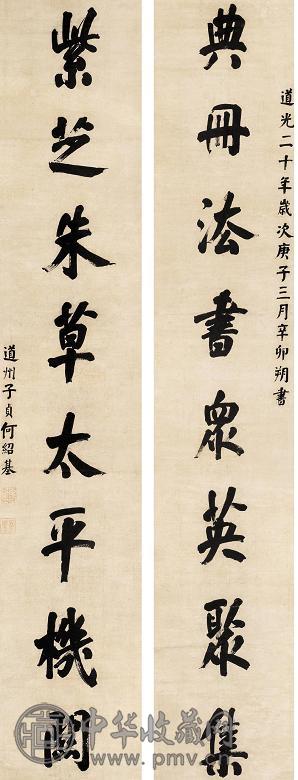 道光二十年歲次庚子三月辛卯朔書
典冊法書眾英聚集
紫芝朱草太平機關
道州子貞何紹基
中华收藏网
www.pmv.